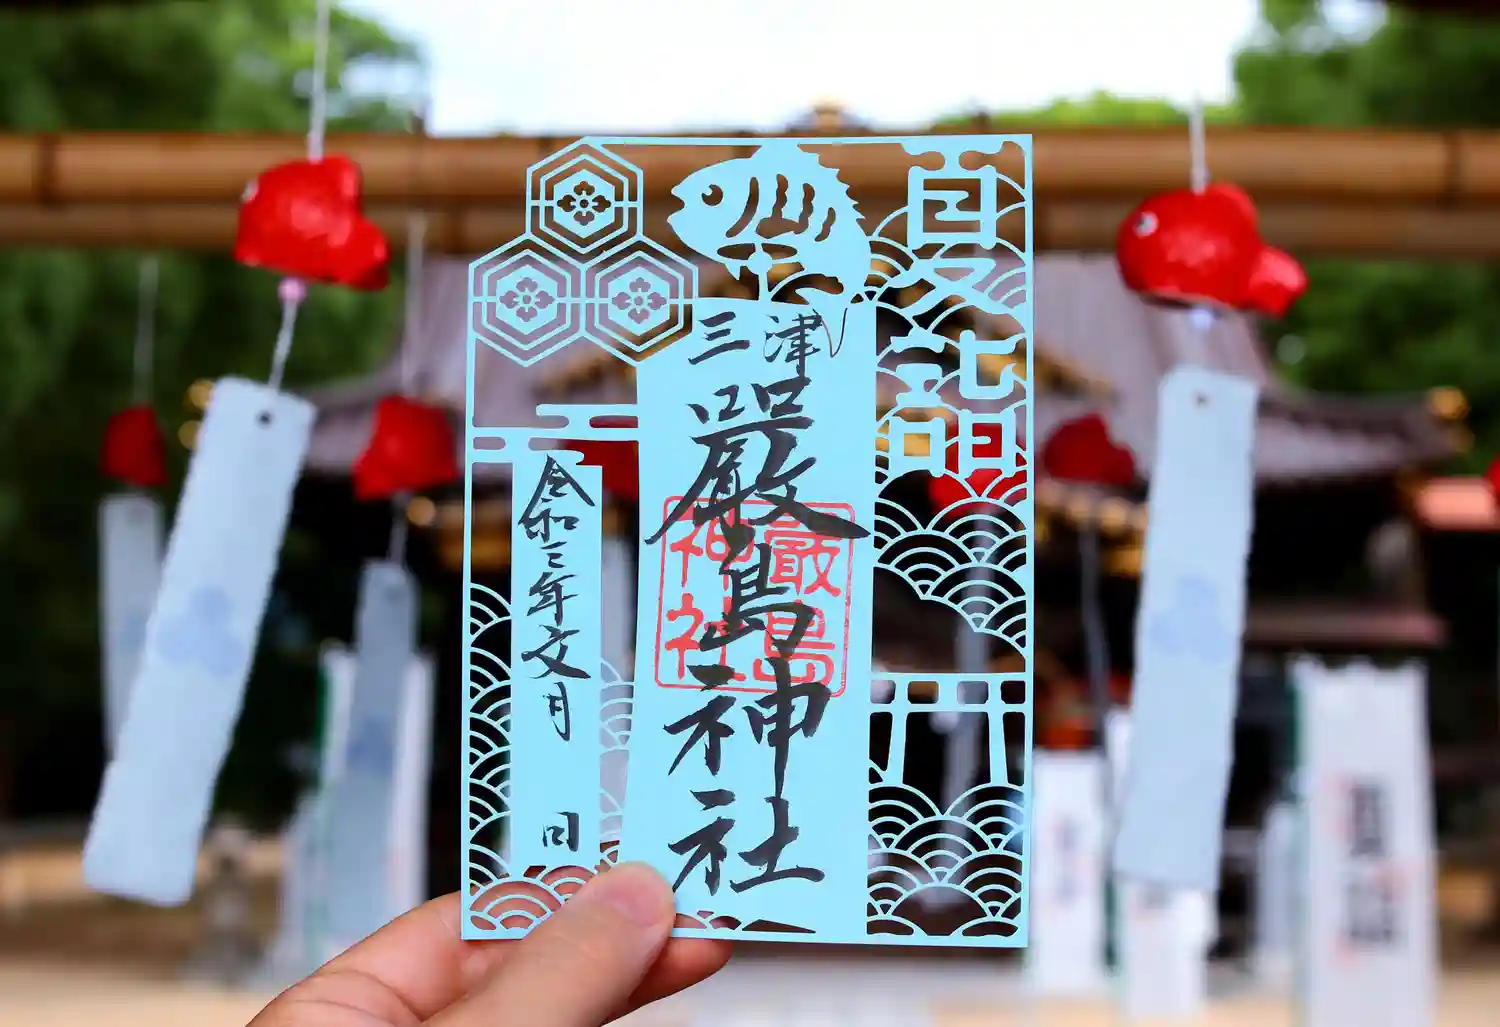 夏詣
三津
厳島神社
厳島
神社
令和三年文月 日
夏詣